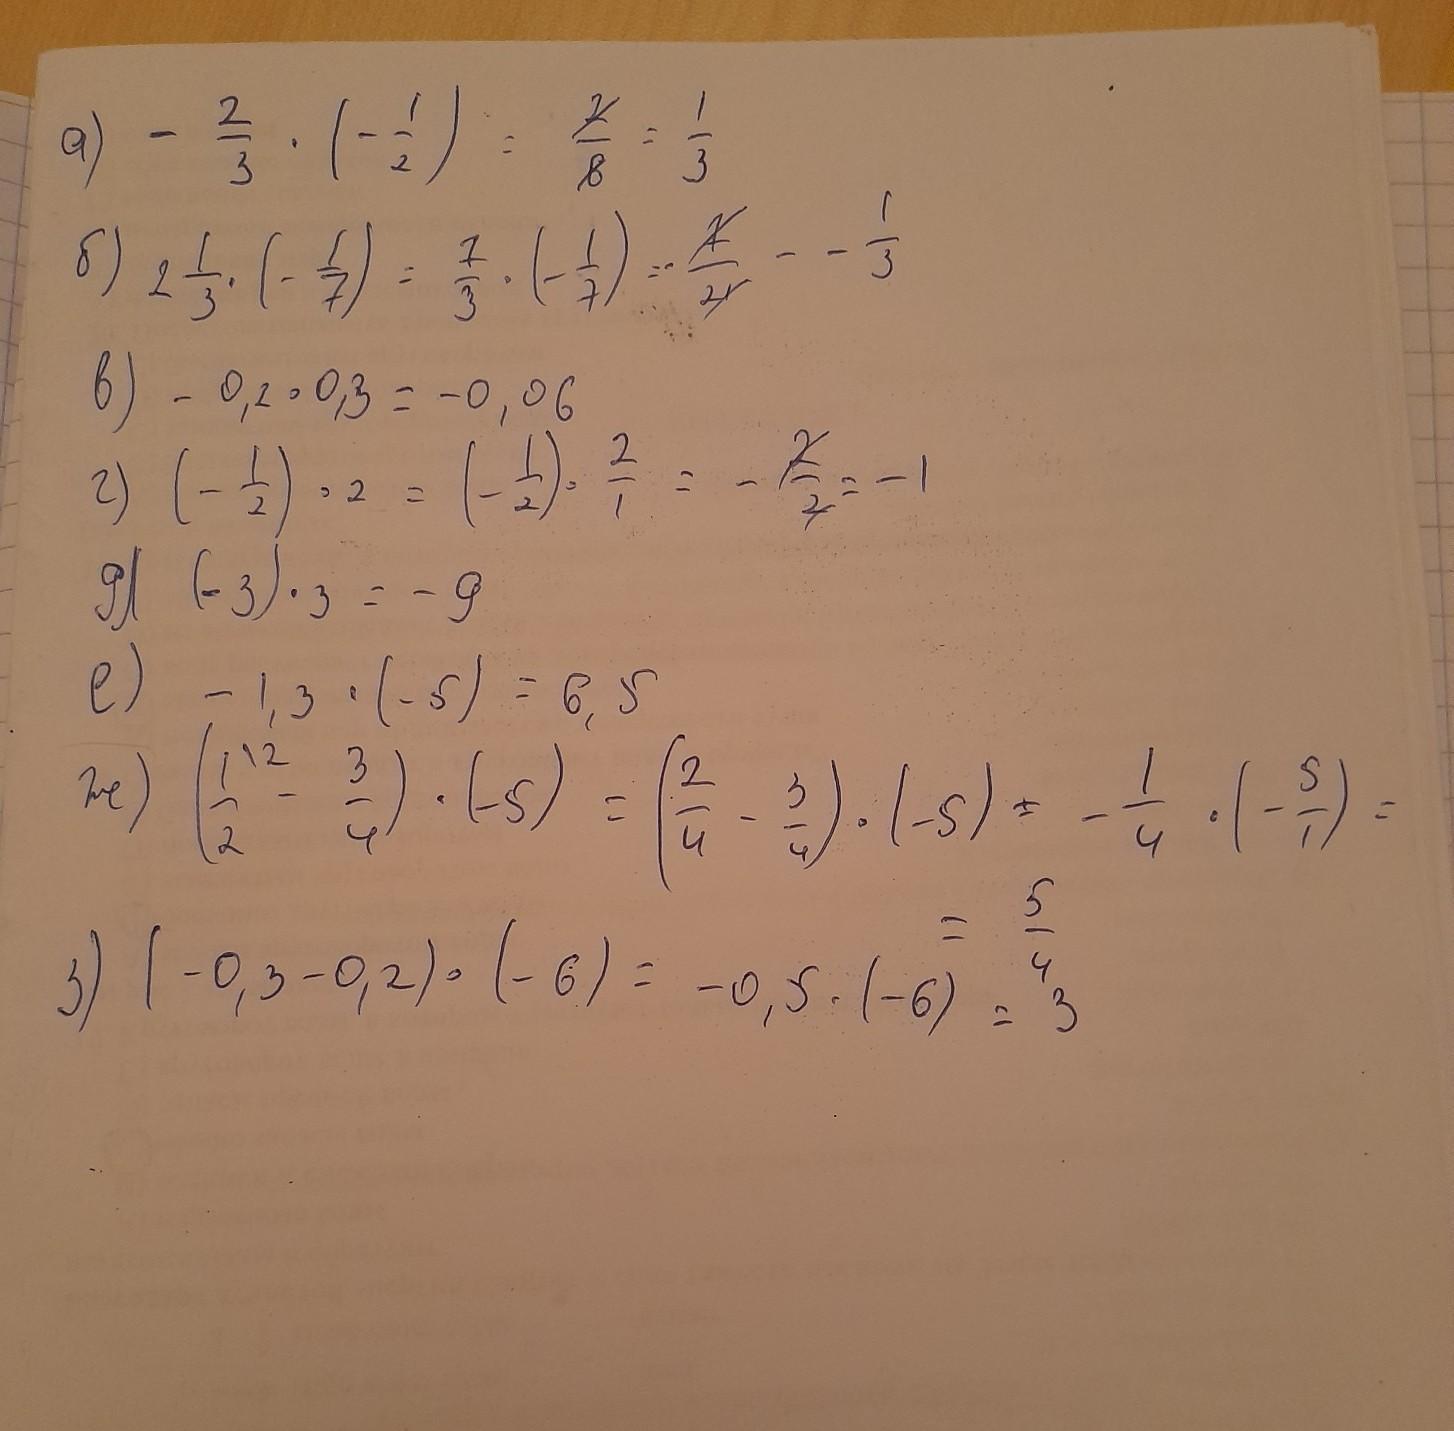 а) - 2/3 · (- 1/2) = 2/6 = 1/3
б) 2 1/3 · (- 1/7) = 7/3 · (- 1/7) = - 7/21 = - 1/3
в) - 0,2 · 0,3 = -0,06
г) (- 1/2) · 2 = (- 1/2) · 2/1 = - 2/2 = -1
д) (-3) · 3 = -9
е) - 1,3 · (-5) = 6,5
ж) (1/2 \2 - 3/4) · (-5) = (2/4 - 3/4) · (-5) = - 1/4 · (- 5/1) =
= 5/4
з) (-0,3-0,2) · (-6) = -0,5 · (-6) = 3